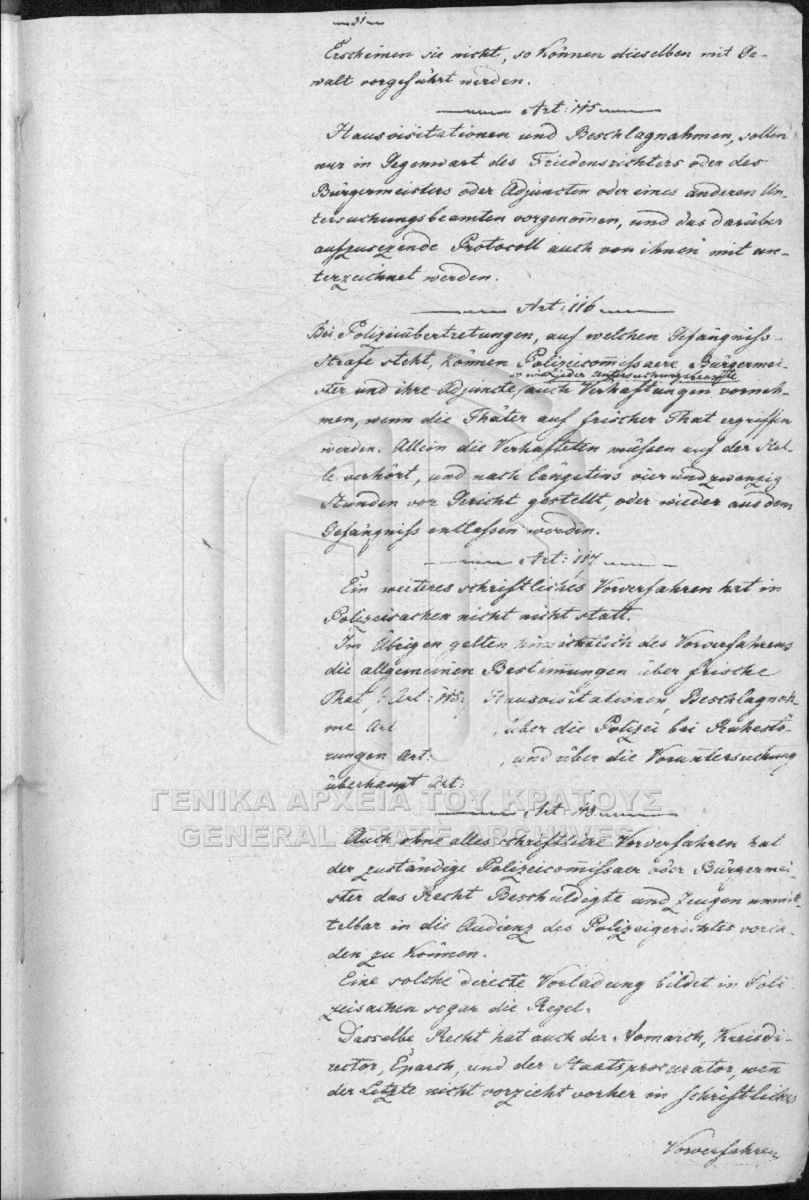 31
Erscheinen sie nicht, so können dieselben mit Ge-
walt vorgeführt werden.
Art: 115
Hausvisitationen und Beschlagnahmen, sollen
nur in Gegenwart des Friedensrichters oder des
Bürgermeisters oder Adjuncten oder eines anderen Un-
tersuchungsbeamten vorgenom̄en, und das darüber
aufzusezende Protocoll auch von ihnen mit un-
terzeichnet werden.
Art: 116
Bei Polizeiübertretungen, auf welchen Gefängniss-
strafe steht, können Polizeicom̄issaere Bürgermei-
so wie jeder Untersuchungsbeamte
ster und ihre Adjuncte, auch Verhaftungen vorneh-
men, wenn die Thäter auf frischer That ergriffen
werden. Allein die Verhafteten müssen auf der Stel-
le verhört, und nach längstens vier und zwanzig
Stunden vor Gericht gestellt, oder wieder aus dem
Gefängniss entlassen werden.
Art: 117
Ein weiteres schriftliches Vorverfahren hat in
Polizeisachen nicht nicht statt.
Im Übrigen gelten hinsichtlich des Vorverfahrens
die allgemeinen Bestim̄ungen über frische
That, Art: 115: Hausvisitationen, Beschlagnah-
me Art , über die Polizei bei Ruhestö-
rungen Art: , und über die Voruntersuchung
überhaupt Art:
ΓΕΝΙΚΑ ΑΡΧΕΙΑ ΤΟΥ ΚΡΑΤΟΥΣ
GENERAL STATE ARCHIVES
Art:
Auch ohne alles schriftliche Vorverfahren hat
der zuständige Polizeicom̄issaer oder Bürgermei-
ster das Recht Beschuldigte und Zeugen unmit-
telbar in die Audienz des Polizeigerichtes vorla-
den zu können.
Eine solche directe Vorladung bildet in Poli-
zeisachen sogar die Regel.
Dasselbe Recht hat auch der Nomarch, Kreisdi-
rector, Eparch, und der Staatsprocurator, wen̄
der Letzte nicht vorzieht vorher in schriftliches
Vorverfahren